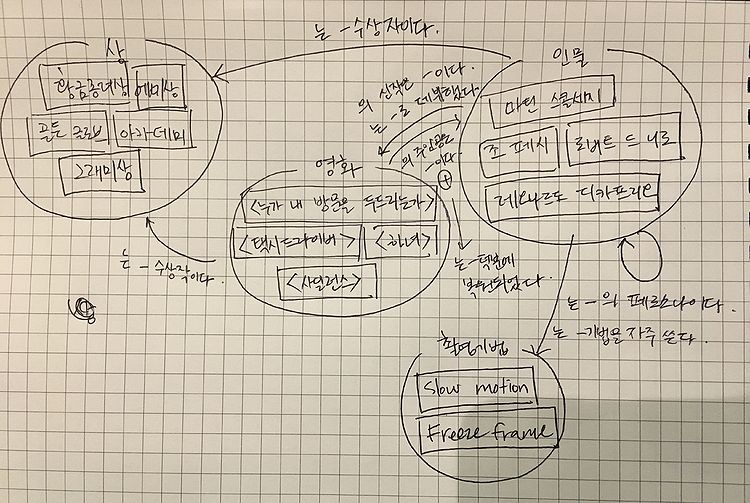 는 -수상자이다.
상
황금종려상 에미상
골든 글로브 아카데미
그래미상
인물
마틴 스콜세지
조 페시 로버트 드 니로
레오나르도 디카프리오
의 신작은 -이다.
는 -로 데뷔했다.
의 주인공은
-이다
영화
<누가 내 방문을 두드리는가>
<택시드라이버> <하녀>
<사일런스>
는 -수상작이다.
는 -덕분에
복원되었다.
는 -의 페르소나이다.
는 -기법을 자주 쓴다.
촬영기법
Slow motion
Freeze frame